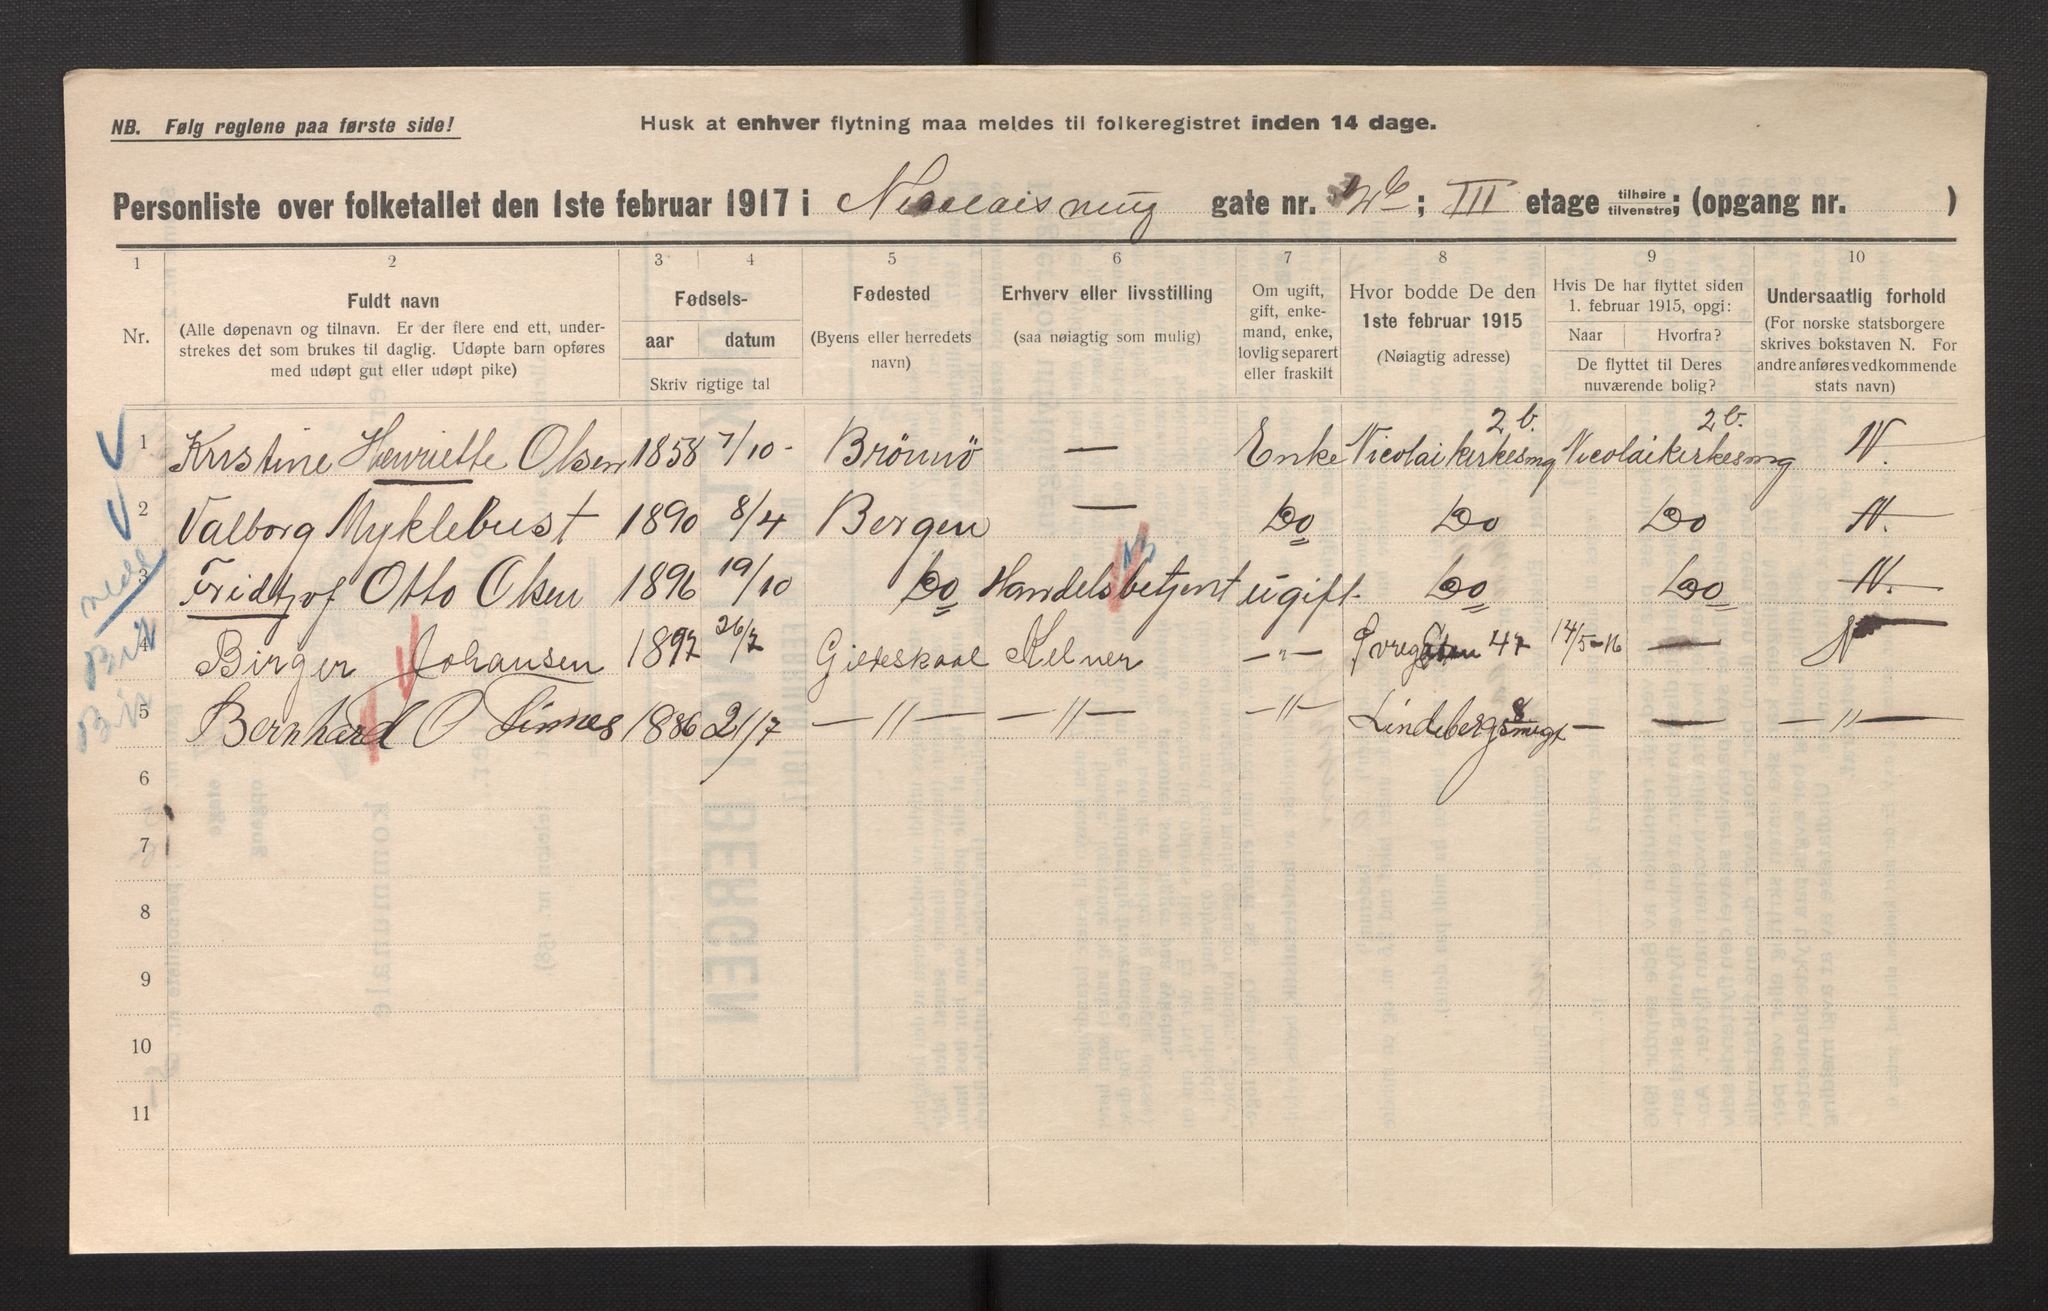 NB. Følg reglene paa første side!
Husk at enhver flytning maa meldes til folkeregistret inden 14 dage.
Personliste over folketallet den 1ste februar 1917 i Nicolaismug gate nr. 2b; III etage tilhøire tilvenstre; (opgang nr. )
1 2 3 4 5 6 7 8 9 10
Nr.
Fuldt navn
(Alle døpenavn og tilnavn. Er der flere end ett, under-
strekes det som brukes til daglig. Udøpte barn opføres
med udøpt gut eller udøpt pike)
Fødsels-
aar datum
Skriv rigtige tal
Fødested
(Byens eller herredets
navn)
Erhverv eller livsstilling
(saa nøiagtig som mulig)
Om ugift,
gift, enke-
mand, enke,
lovlig separert
eller fraskilt
Hvor bodde De den
1ste februar 1915
(Nøiagtig adresse)
Hvis De har flyttet siden
1. februar 1915, opgi:
Naar Hvorfra?
De flyttet til Deres
nuværende bolig?
Undersaatlig forhold
(For norske statsborgere
skrives bokstaven N. For
andre anføres vedkommende
stats navn)
1 Kristine Henriette Olsen 1858 7/10 - Brönnö — Enke Nicolaikirkesmg 2b. Nicolaikirkesmg 2b. N.
2 Valborg Myklebust 1890 8/4 Bergen — Do Do Do N.
3 Fridtjof Otto Olsen 1896 19/10 Do Handelsbetjent ugift Do Do N.
4 Birger Johansen 1897 26/7 Gildeskaal Kelner —"— Øvregaten 47 14/5-16 — N
5 Bernhard O Finnes 1886 21/7 —"— —"— —"— Lindebergsmugt 8 — — —"—
6
7
8
9
10
11